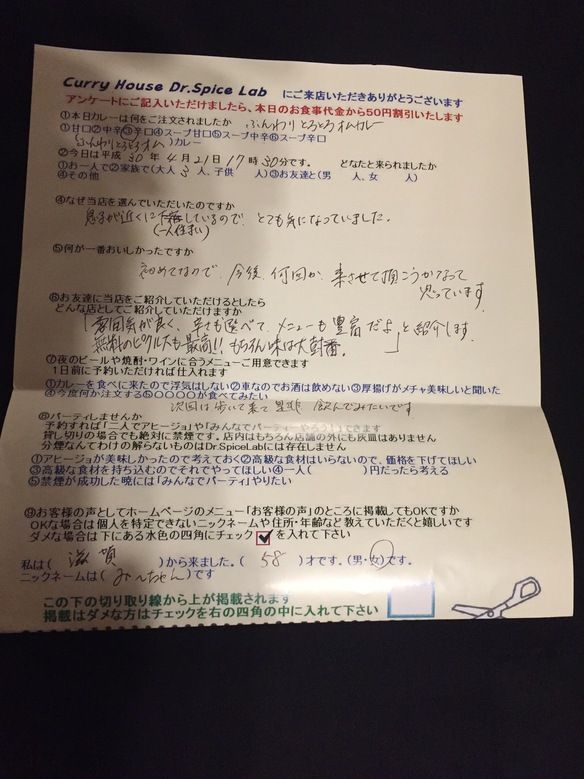 Curry House Dr.Spice Lab にご来店いただきありがとうございます
アンケートにご記入いただけましたら、本日のお食事代金から50円割引いたします
①本日カレーは何をご注文されましたか ふんわりとろとろオムカレー
①甘口②中辛③辛口④スープ甘口⑤スープ中辛⑥スープ辛口
(ふんわりとろとろオム)カレー
②今日は平成 30 年 4 月 21 日 17 時 30 分です。 どなたと来られましたか
①お一人で②家族で(大人 3 人、子供 人)③お友達と(男 人、女 人)
④その他
④なぜ当店を選んでいただいたのですか
息子が近くに下宿しているので、とても気になっていました。
(一人住まい)
⑤何が一番おいしかったですか
初めてなので、今後、何回か、来させて頂こうかなって
思っています
⑥お友達に当店をご紹介していただけるとしたら
どんな店としてご紹介していただけますか
「雰囲気が良く、辛さも選べて、メニューも豊富だよ」と紹介します
無料のピクルスも最高!! もちろん味は太鼓番。
⑦夜のビールや焼酎・ワインに合うメニューご用意できます
1日前に予約いただければ仕入れます
①カレーを食べに来たので浮気はしない②車なのでお酒は飲めない③厚揚げがメチャ美味しいと聞いた
④今度何か注文する⑤〇〇〇〇が食べてみたい
次回は歩いて来て是非 飲んでみたいです
⑧パーティしませんか
予約すれば「二人でアヒージョ」や「みんなでパーティーやろう!」できます
貸し切りの場合でも絶対に禁煙です。店内はもちろん店舗の外にも灰皿はありません
分煙なんてわけの解らないものはDr.SpiceLabには存在しません
①アヒージョが美味しかったので考えておく②高級な食材はいらないので、価格を下げてほしい
③高級な食材を持ち込むのでそれでやってほしい④一人( )円だったら考える
⑤禁煙が成功した暁には「みんなでパーティ」やりたい
⑨お客様の声としてホームページのメニュー「お客様の声」のところに掲載してもOKですか
OKな場合は個人を特定できないニックネームや住所・年齢など教えていただくと嬉しいです
ダメな場合は下にある水色の四角にチェック を入れて下さい
私は( 滋賀 )から来ました。( 58 )才です。(男・女)です。
ニックネームは( みーちゃん )です
この下の切り取り線から上が掲載されます
掲載はダメな方はチェックを右の四角の中に入れて下さい